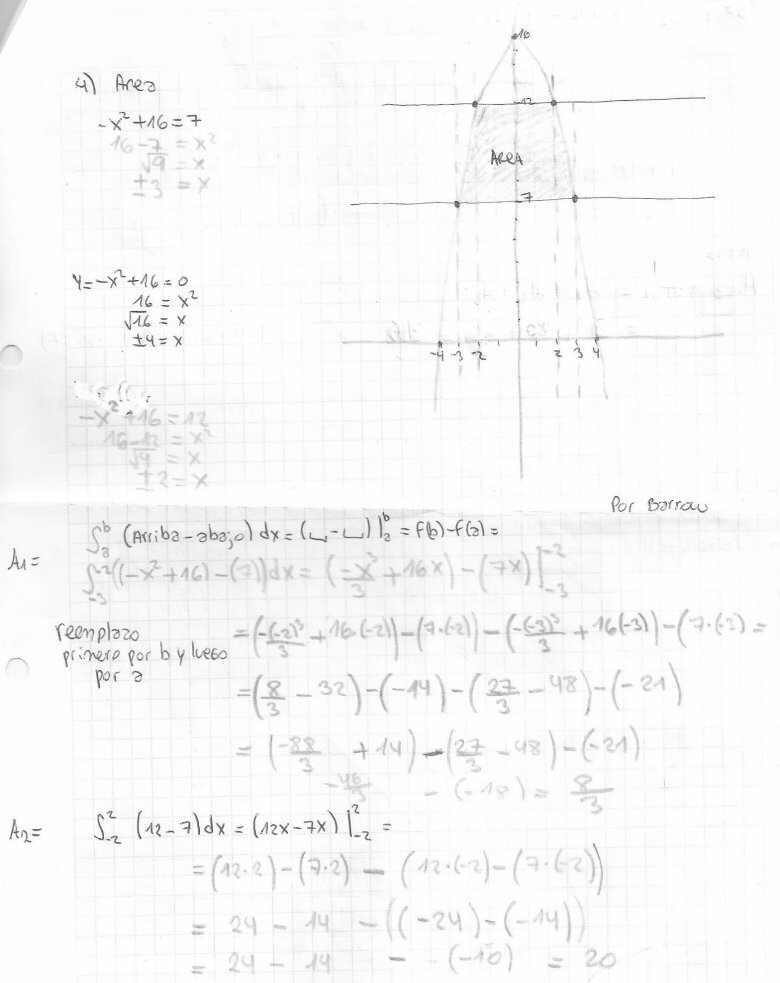 4) Area
-x² + 16 = 7
16 - 7 = x²
√9 = x
±3 = x
16
12
AREA
7
-4 -3 -2 2 3 4
Y = -x² + 16 = 0
16 = x²
√16 = x
±4 = x
-x² + 16 = 12
16 - 12 = x²
√4 = x
±2 = x
Por Barrow
∫ₐᵇ (Arriba - abajo) dx = (⌴ - ⌴) |ₐᵇ = f(b) - f(a) =
A₁ = ∫₋₃⁻² ((-x² + 16) - (7)) dx = (-x³/3 + 16x) - (7x) |₋₃⁻²
reemplazo primero por b y luego por a
= (-(-2)³/3 + 16(-2)) - (7·(-2)) - (-(-3)³/3 + 16(-3)) - (7·(-3) =
= (8/3 - 32) - (-14) - (27/3 - 48) - (-21)
= (-88/3 + 14) - (27/3 - 48) - (-21)
-46/3 - (-18) = 8/3
A₂ = ∫₋₂² (12 - 7) dx = (12x - 7x) |₋₂² =
= (12·2) - (7·2) - (12·(-2) - (7·(-2))
= 24 - 14 - ((-24) - (-14))
= 24 - 14 - (-10) = 20